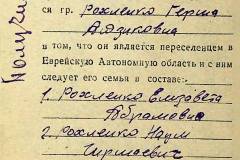 ся гр. Рохленко Герша
Айзиковна
в том, что он является переселенцем в
Еврейскую Автономную область и с ним
следует его семья в составе:
1. Рохленко Елизавета
Абрамовна
2. Рохленко Наум
Гиршевич
Получ